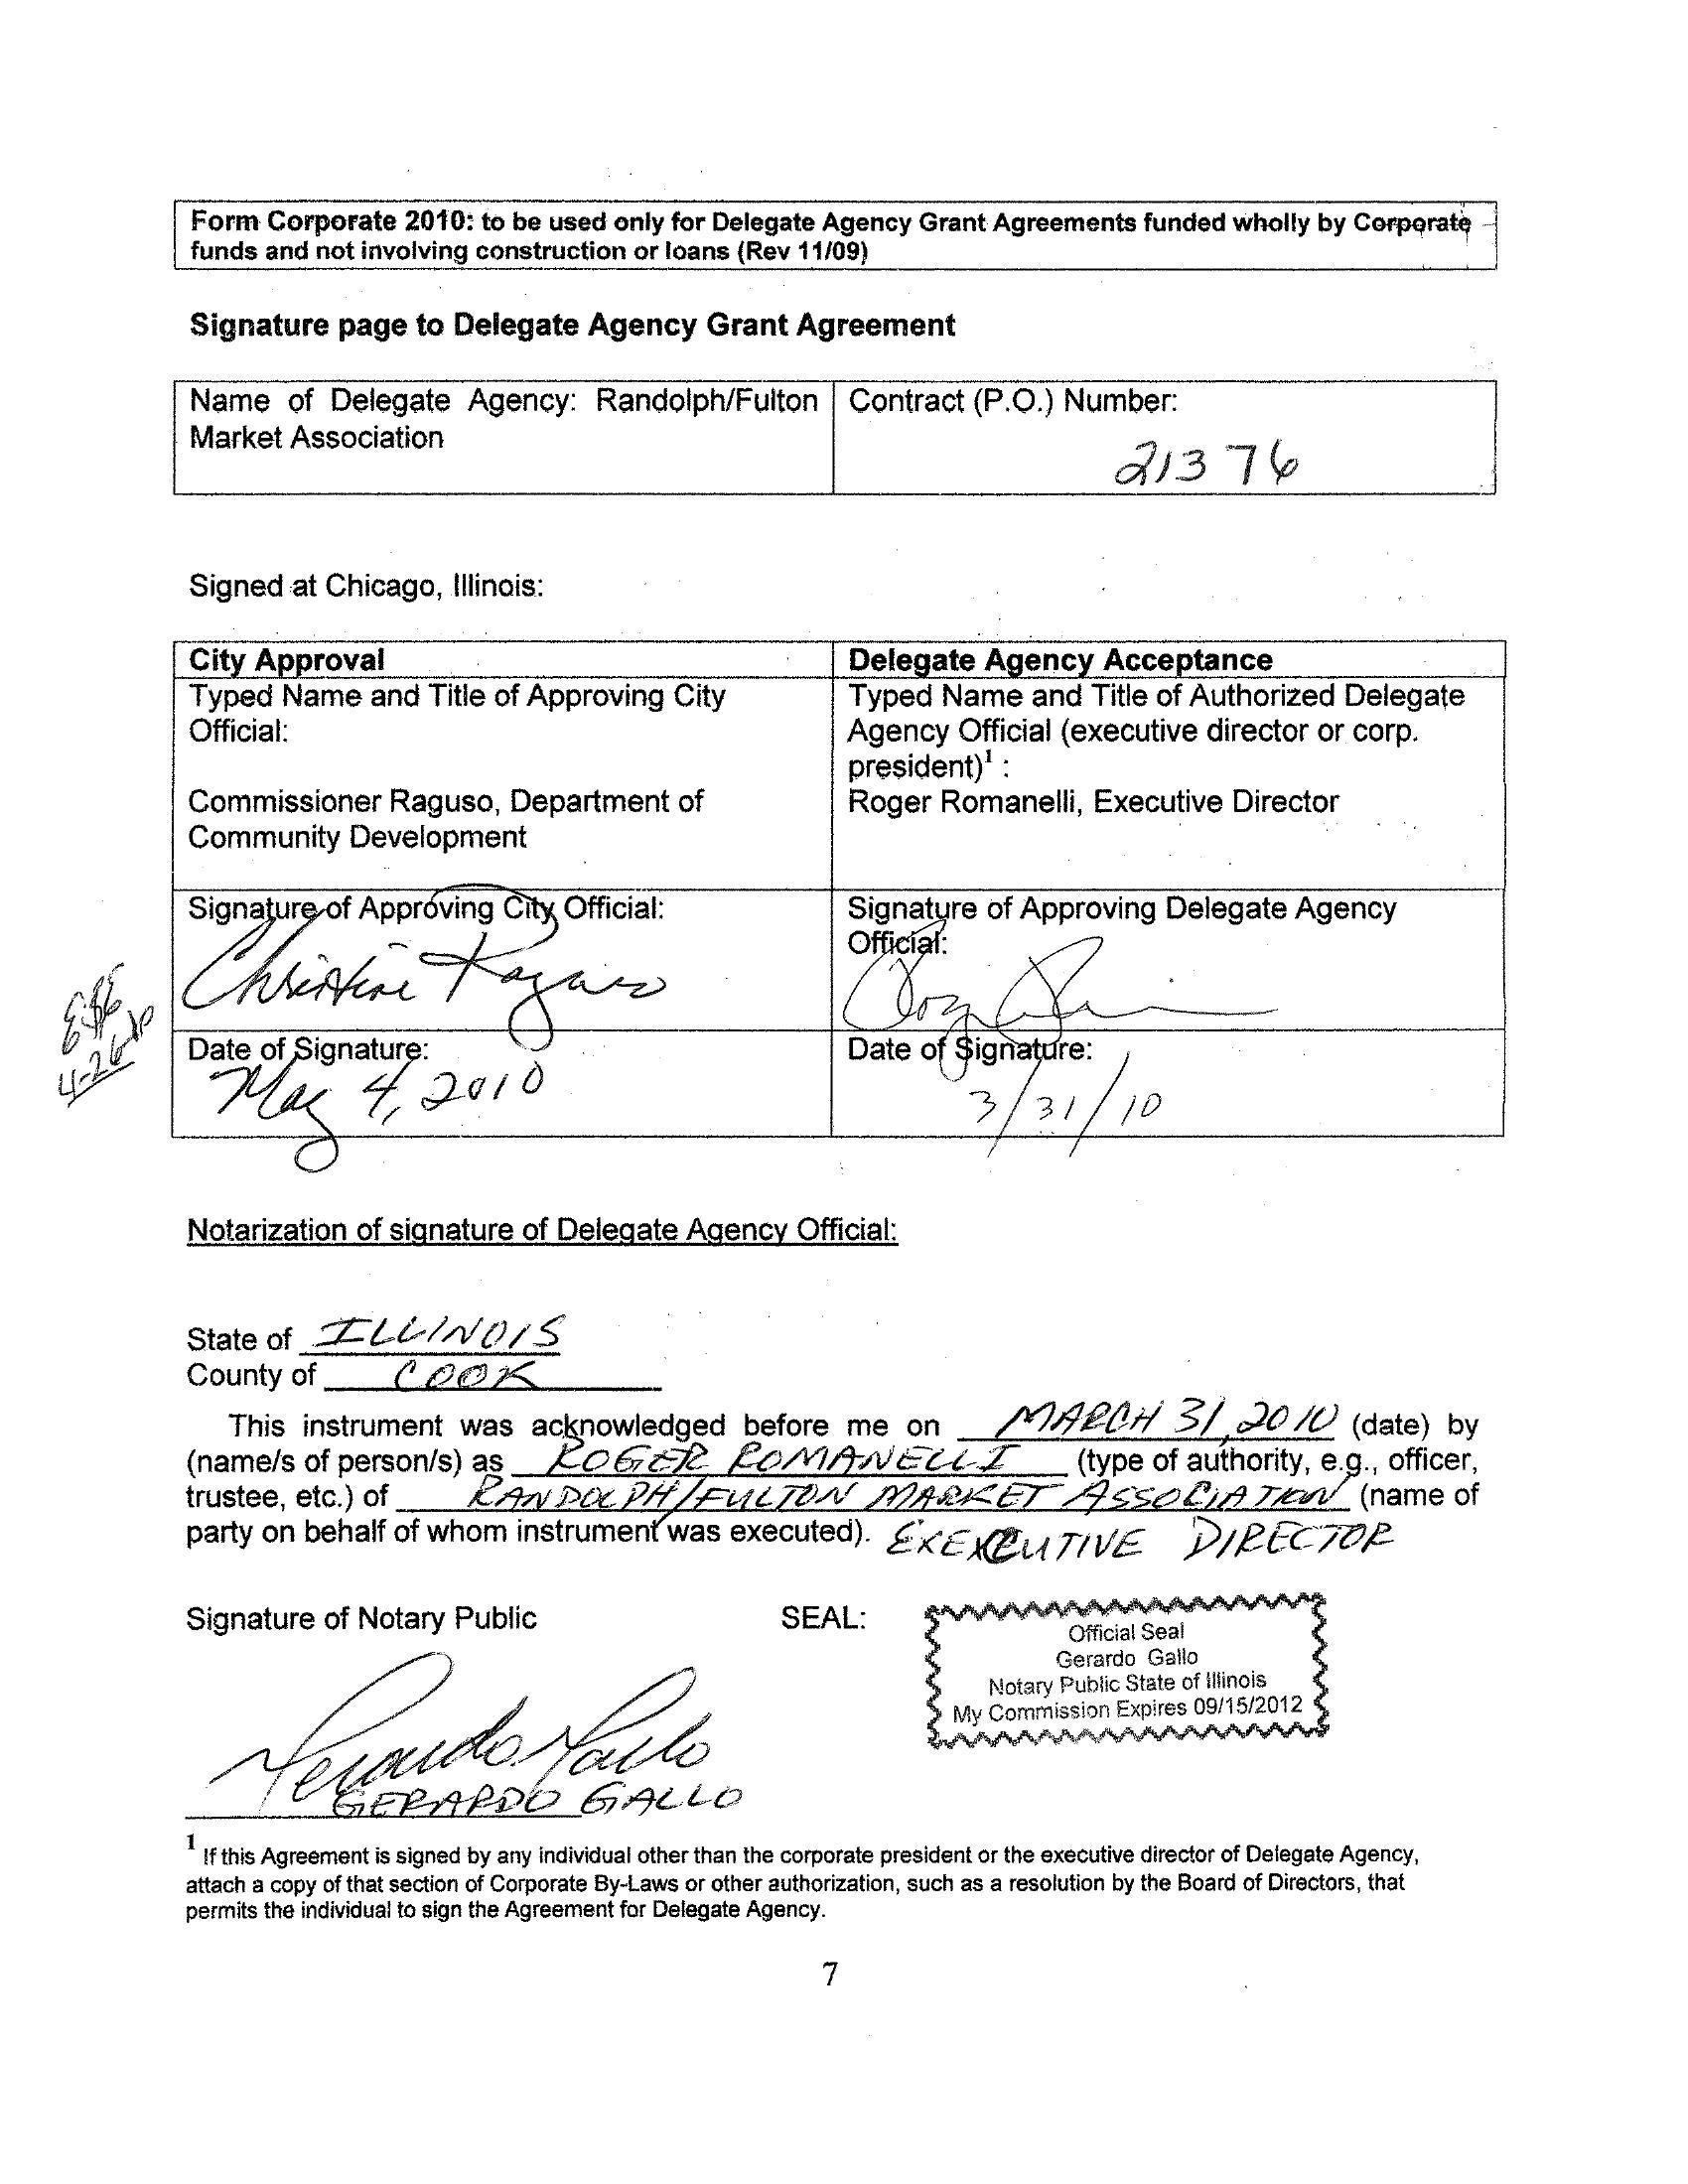 Form Corporate 2010: to be used only for Delegate Agency Grant Agreements funded wholly by Corporate
funds and not involving construction or loans (Rev 11/09)
Signature page to Delegate Agency Grant Agreement
Name of Delegate Agency: Randolph/Fulton
Market Association
Contract (P.O.) Number:
21376
Signed at Chicago, Illinois:
City Approval
Typed Name and Title of Approving City
Official:
Commissioner Raguso, Department of
Community Development
Delegate Agency Acceptance
Typed Name and Title of Authorized Delegate
Agency Official (executive director or corp.
president)¹ :
Roger Romanelli, Executive Director
Signature of Approving City Official:
Christine Raguso
Signature of Approving Delegate Agency
Official:
4-26-10
Date of Signature:
May 4, 2010
Date of Signature:
3/31/10
Notarization of signature of Delegate Agency Official:
State of ILLINOIS
County of COOK
This instrument was acknowledged before me on MARCH 31, 2010 (date) by
(name/s of person/s) as ROGER ROMANELLI (type of authority, e.g., officer,
trustee, etc.) of RANDOLPH/FULTON MARKET ASSOCIATION (name of
party on behalf of whom instrument was executed). EXECUTIVE DIRECTOR
Signature of Notary Public
SEAL:
Official Seal
Gerardo Gallo
Notary Public State of Illinois
My Commission Expires 09/15/2012
Gerardo Gallo
GERARDO GALLO
¹ If this Agreement is signed by any individual other than the corporate president or the executive director of Delegate Agency,
attach a copy of that section of Corporate By-Laws or other authorization, such as a resolution by the Board of Directors, that
permits the individual to sign the Agreement for Delegate Agency.
7